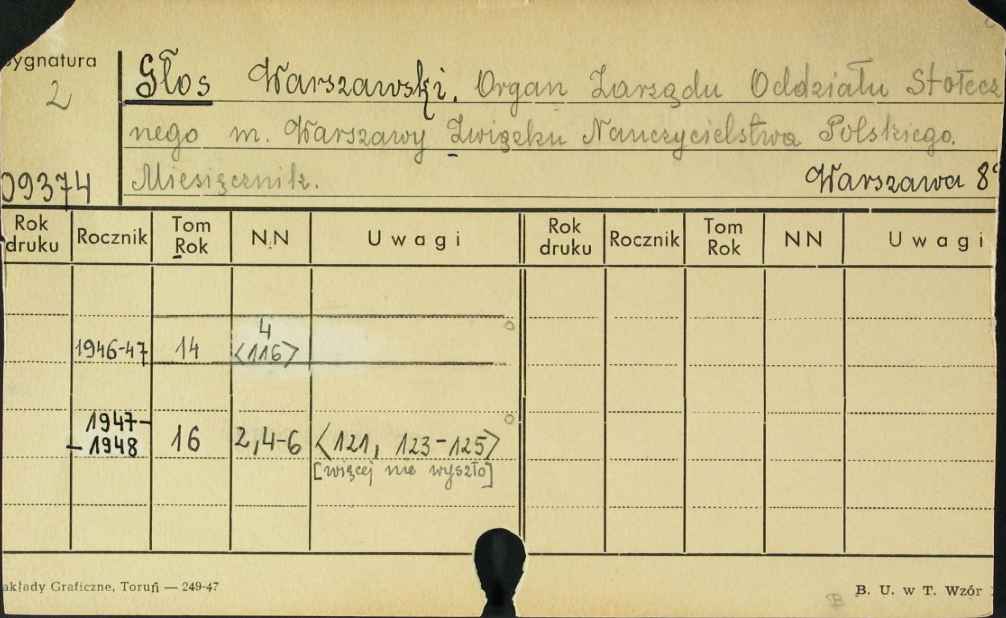 Sygnatura
2
Głos Warszawski. Organ Zarządu Oddziału Stołecz
nego m. Warszawy Związku Nauczycielstwa Polskiego.
09374
Miesięcznik. Warszawa 8°
Rok druku Rocznik Tom Rok NN Uwagi Rok druku Rocznik Tom Rok NN Uwagi
1946-47 14 4 <116>
1947-
-1948 16 2,4-6 <121, 123-125>
[więcej nie wyszło]
akłady Graficzne, Toruń — 249-47
B. U. w T. Wzór